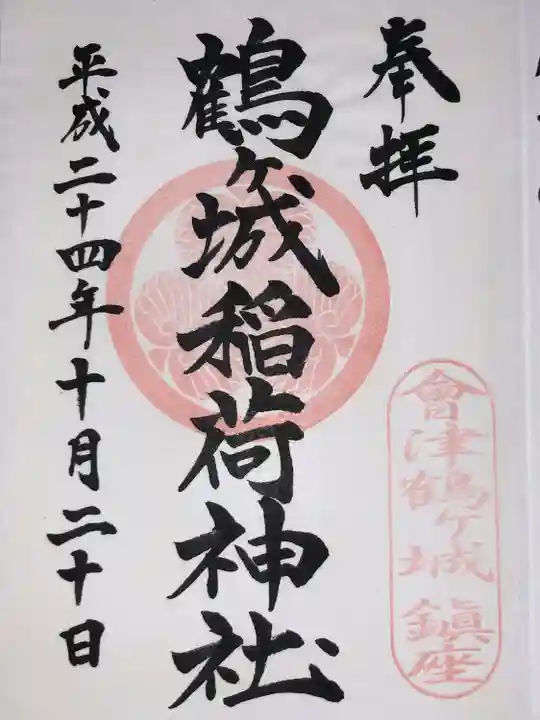 奉拝
會津鶴ヶ城鎮座
鶴ヶ城稲荷神社
平成二十四年十月二十日